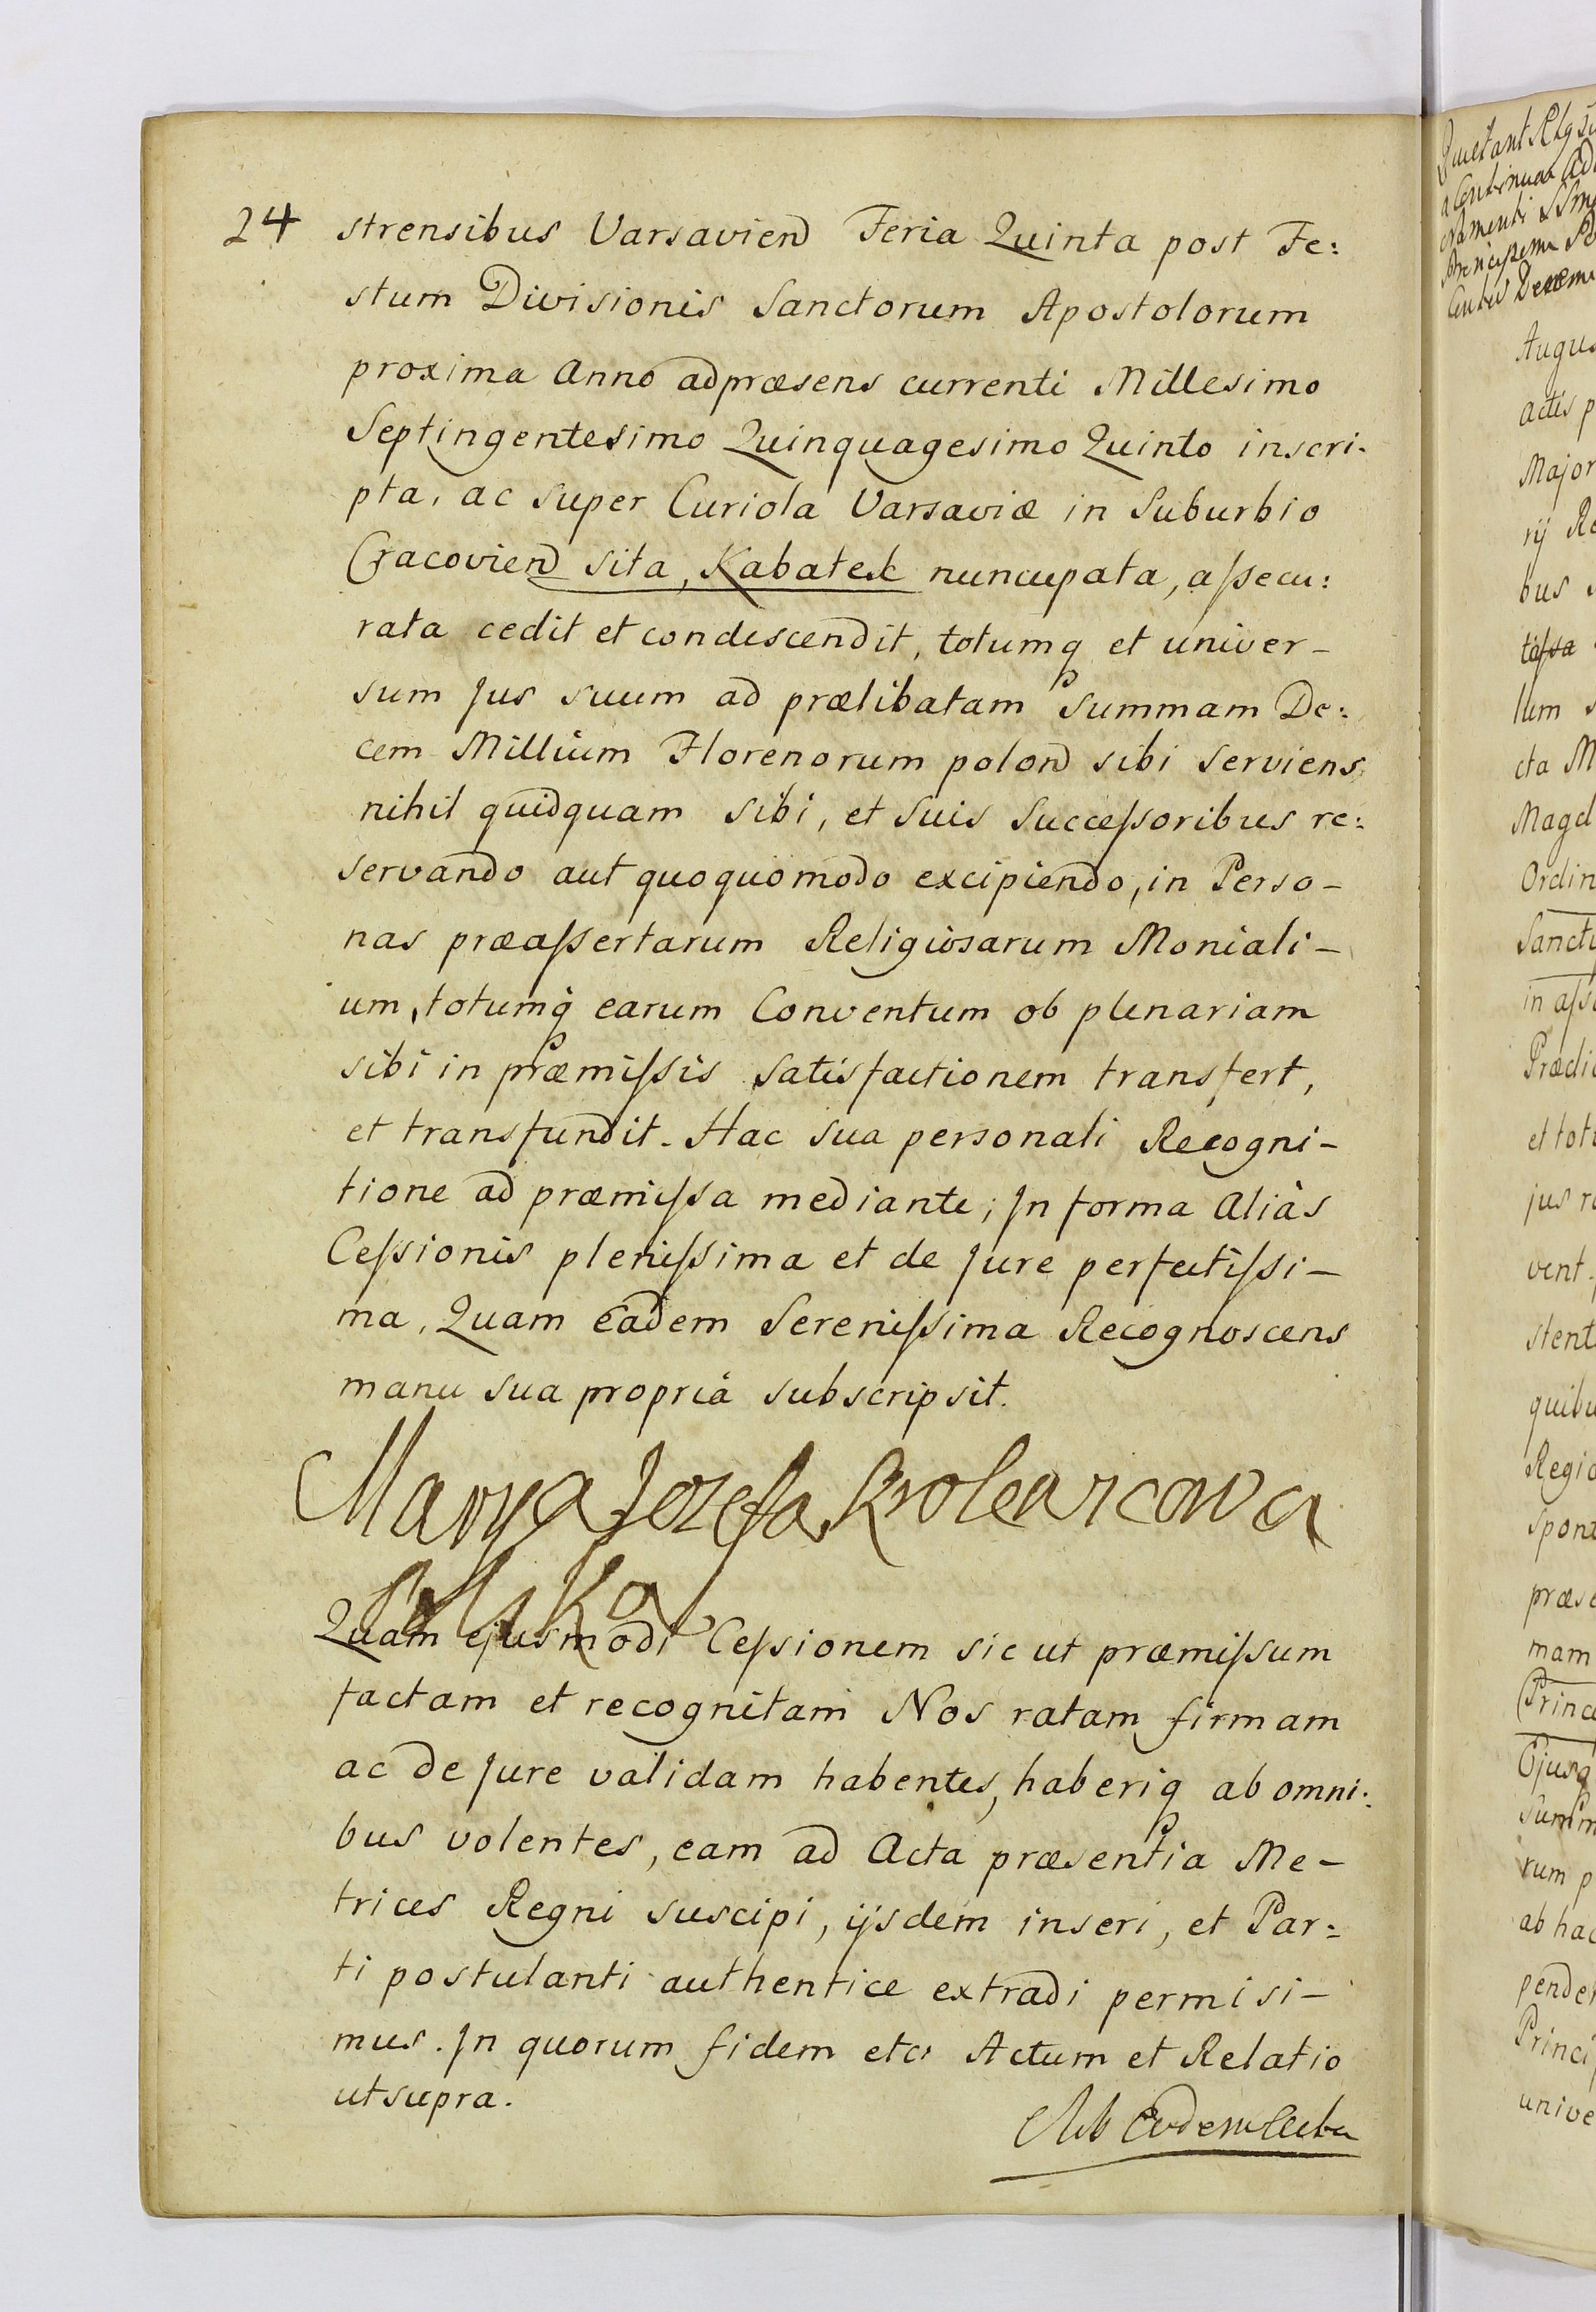 24
strensibus Varsavien Feria Quinta post Fe:
stum Divisionis Sanctorum Apostolorum
proxima Anno adpræsens currenti Millesimo
Septingentesimo Quinquagesimo Quinto inscri-
pta, ac super Curiola Varsaviæ in Suburbio
Cracovien sita, Kabatek nuncupata, aſsecu:
rata cedit et condescendit, totumq et univer-
sum Jus suum ad prælibatam Summam De:
cem Millium Florenorum polon sibi serviens,
nihil quidquam sibi, et suis Succeſsoribus re:
servando aut quoquomodo excipiendo, in Perso-
nas præaſsertarum Religiosarum Moniali-
um, totumq earum Conventum ob plenariam
sibi in præmiſsis satisfactionem transfert,
et transfundit. Hac sua personali Recogni-
tione ad præmiſsa mediante; Jn forma aliàs
Ceſsionis pleniſsima et de Jure perfectiſsi-
ma, Quam eadem Sereniſsima Recognoscens
manu sua propriâ subscripsit.
Marya Jozefa Krolewicowa
Polska
Quam ejusmodi Ceſsionem sic ut præmiſsum
factam et recognitam Nos ratam firmam
ac de Jure validam habentes, haberiq ab omni:
bus volentes, eam ad Acta præsentia Me-
trices Regni suscipi, ijsdem inseri, et Par:
ti postulanti authentice extradi permisi-
mus. Jn quorum fidem etc: Actum et Relatio
utsupra.
Quietant
a Continua
Augus
actis p
Major
rij Re
bus
lum s
cta M
Magd
Ordin
Sancti
in aſs
Prædic
et tot
jus r
vent.
stent
quibu
Regia
spont
præs
mam
Prince
Ejusq
Summ
rum p
ab hac
pende
Princi
unive